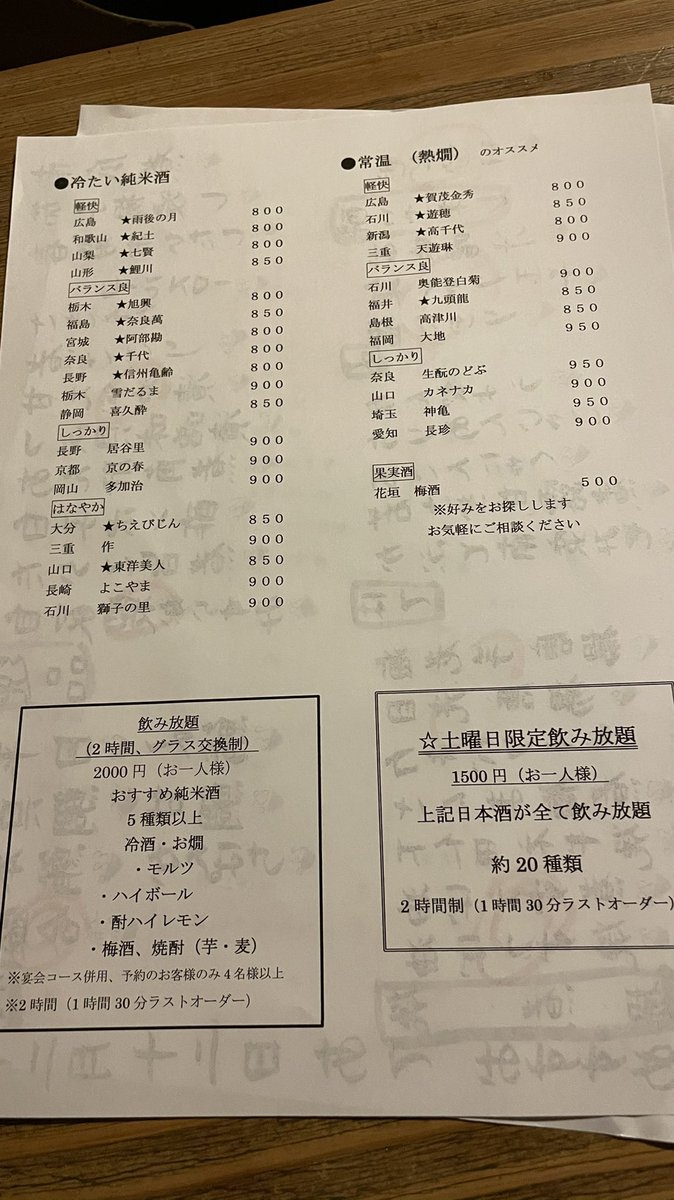 ●冷たい純米酒
軽快
広島 ★雨後の月 800
和歌山 ★紀土 800
山梨 ★七賢 800
山形 ★鯉川 850
バランス良
栃木 ★旭興 800
福島 ★奈良萬 850
宮城 ★阿部勘 800
奈良 ★千代 800
長野 ★信州亀齢 800
栃木 雪だるま 900
静岡 喜久酔 850
しっかり
長野 居谷里 900
京都 京の春 900
岡山 多加治 900
はなやか
大分 ★ちえびじん 850
三重 作 900
山口 ★東洋美人 850
長崎 よこやま 900
石川 獅子の里 900
●常温 (熱燗) のオススメ
軽快
広島 ★賀茂金秀 800
石川 ★遊穂 850
新潟 ★高千代 800
三重 天遊琳 900
バランス良
石川 奥能登白菊 900
福井 ★九頭龍 850
島根 高津川 850
福岡 大地 950
しっかり
奈良 生酛のどぶ 950
山口 カネナカ 900
埼玉 神亀 950
愛知 長珍 900
果実酒
花垣 梅酒 500
※好みをお探しします
お気軽にご相談ください
飲み放題
(2時間、グラス交換制)
2000円(お一人様)
おすすめ純米酒
5種類以上
冷酒・お燗
・モルツ
・ハイボール
・酎ハイレモン
・梅酒、焼酎(芋・麦)
※宴会コース併用、予約のお客様のみ4名様以上
※2時間(1時間30分ラストオーダー)
☆土曜日限定飲み放題
1500円(お一人様)
上記日本酒が全て飲み放題
約20種類
2時間制(1時間30分ラストオーダー)